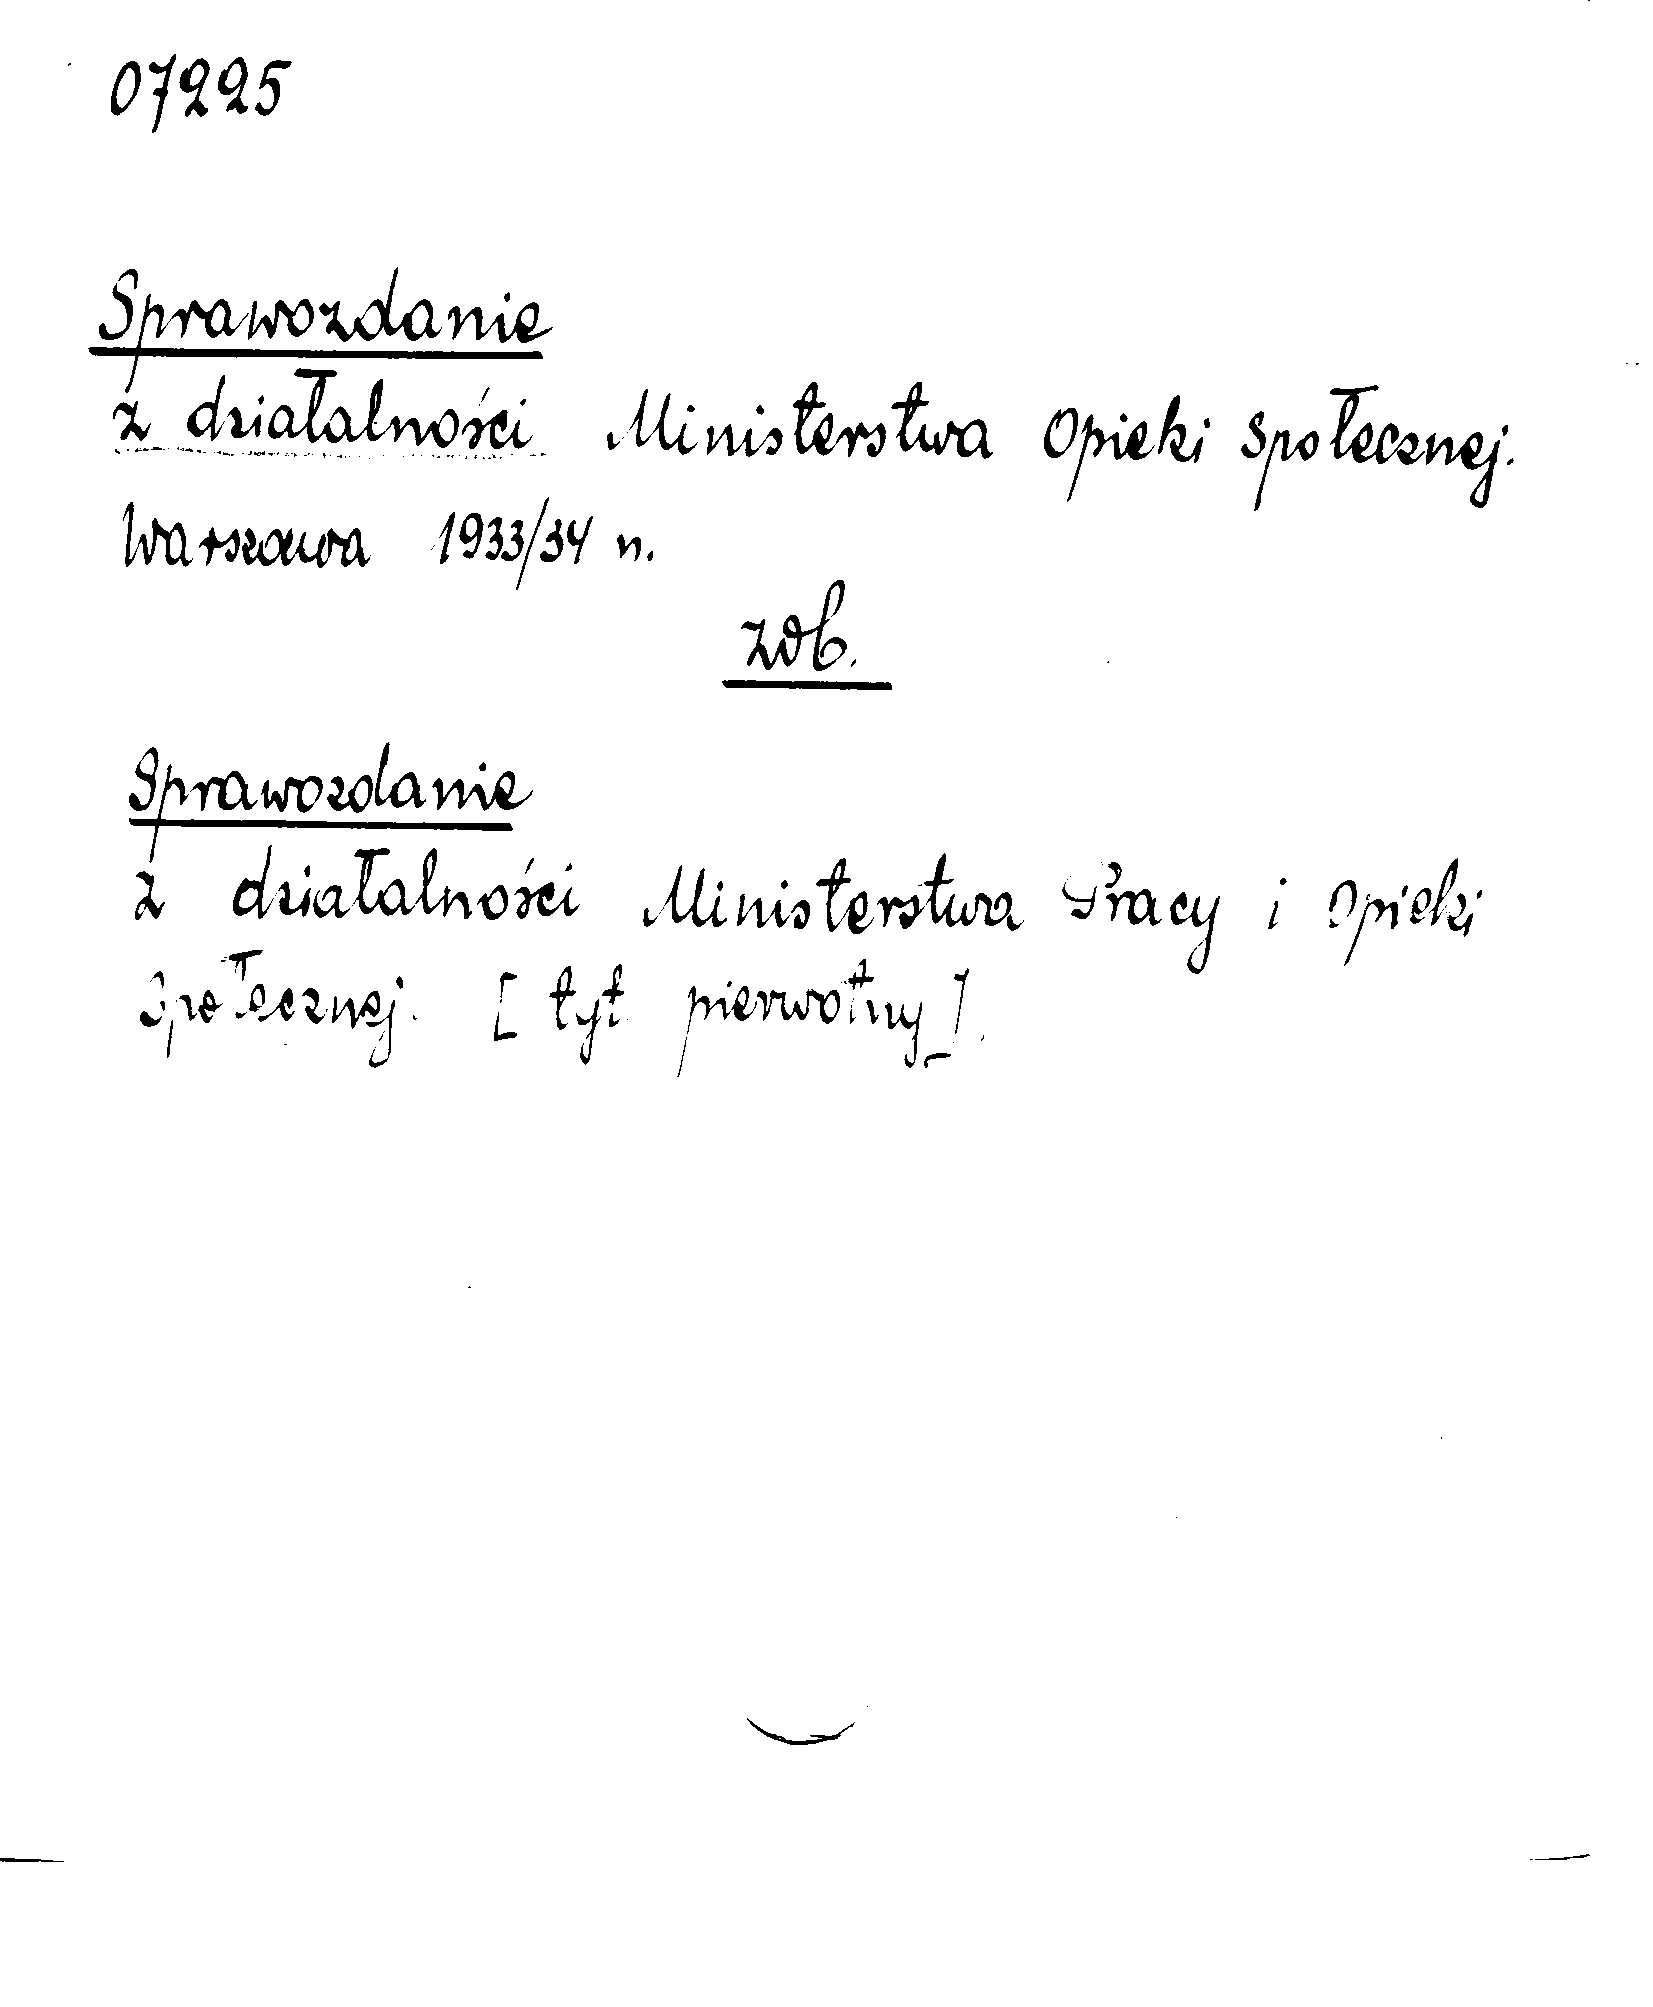 07225
Sprawozdanie
z działalności Ministerstwa Opieki Społecznej.
Warszawa 1933/34 n.
zob.
Sprawozdanie
z działalności Ministerstwa Pracy i Opieki
Społecznej. [tyt. pierwotny].